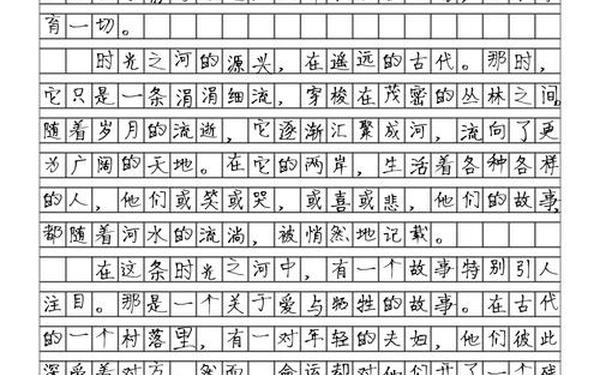 育一切。
时光之河的源头，在遥远的古代。那时，
它只是一条涓涓细流，穿梭在茂密的丛林之间。
随着岁月的流逝，它逐渐汇聚成河，流向了更
为广阔的天地。在它的两岸，生活着各种各样
的人，他们或笑或哭，或喜或悲，他们的故事
都随着河水的流淌，被悄然地记载。
在这条时光之河中，有一个故事特别引人
注目。那是一个关于爱与牺牲的故事。在古代
的一个村落里，有一对年轻的夫妇，他们彼此
深爱着对方。然而，命运却对他们开了一个残